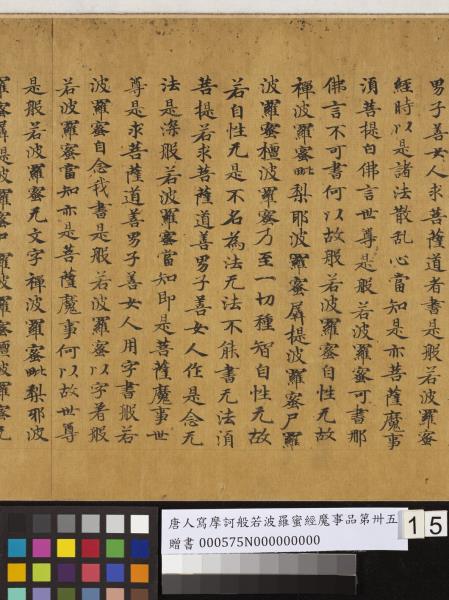 男子善女人求菩薩道者書是般若波羅蜜
經時以是諸法散乱心當知是亦菩薩魔事
湏菩提白佛言世尊是般若波羅蜜可書耶
佛言不可書何以故般若波羅蜜自性无故
禪波羅蜜毗梨耶波羅蜜羼提波羅蜜尸羅
波羅蜜檀波羅蜜乃至一切種智自性无故
若自性无是不名為法无法不能書无法湏
菩提若求菩薩道善男子善女人作是念无
法是深般若波羅蜜當知即是菩薩魔事世
尊是求菩薩道善男子善女人用字書般若
波羅蜜自念我書是般若波羅蜜以字著般
若波羅蜜當知亦是菩薩魔事何以故世尊
是般若波羅蜜无文字禪波羅蜜毗梨耶波
羅蜜羼提波羅蜜尸羅波羅蜜檀波羅蜜无
唐人寫摩訶般若波羅蜜經魔事品第卅五
贈書 000575N000000000
15